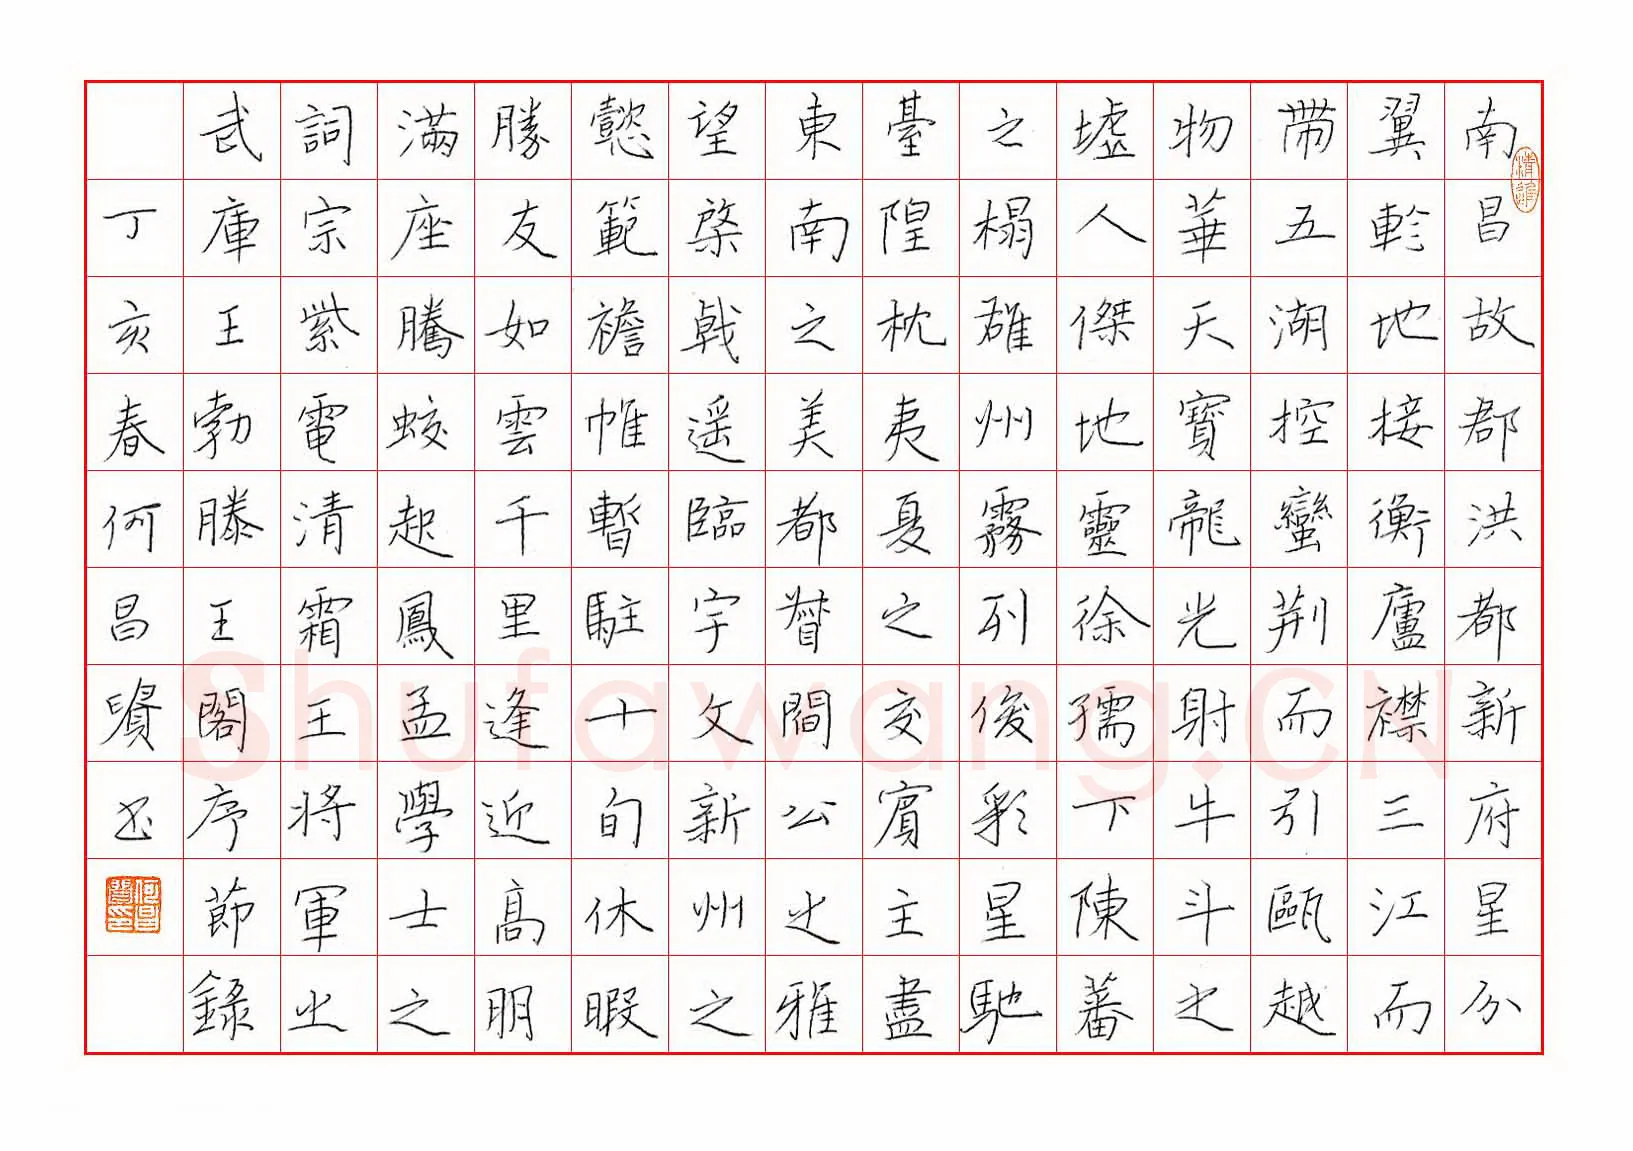 南昌故郡洪都新府星分
翼軫地接衡廬襟三江而
帶五湖控蠻荆而引甌越
物華天寶龍光射牛斗之
墟人傑地靈徐孺下陳蕃
之榻雄州霧列俊彩星馳
臺隍枕夷夏之交賓主盡
東南之美都督閻公之雅
望棨戟遥臨宇文新州之
懿範襜帷暫駐十旬休暇
勝友如雲千里逢迎高朋
滿座騰蛟起鳳孟學士之
詞宗紫電清霜王將軍之
武庫王勃滕王閣序節録
丁亥春何昌書
Shufawang.CN